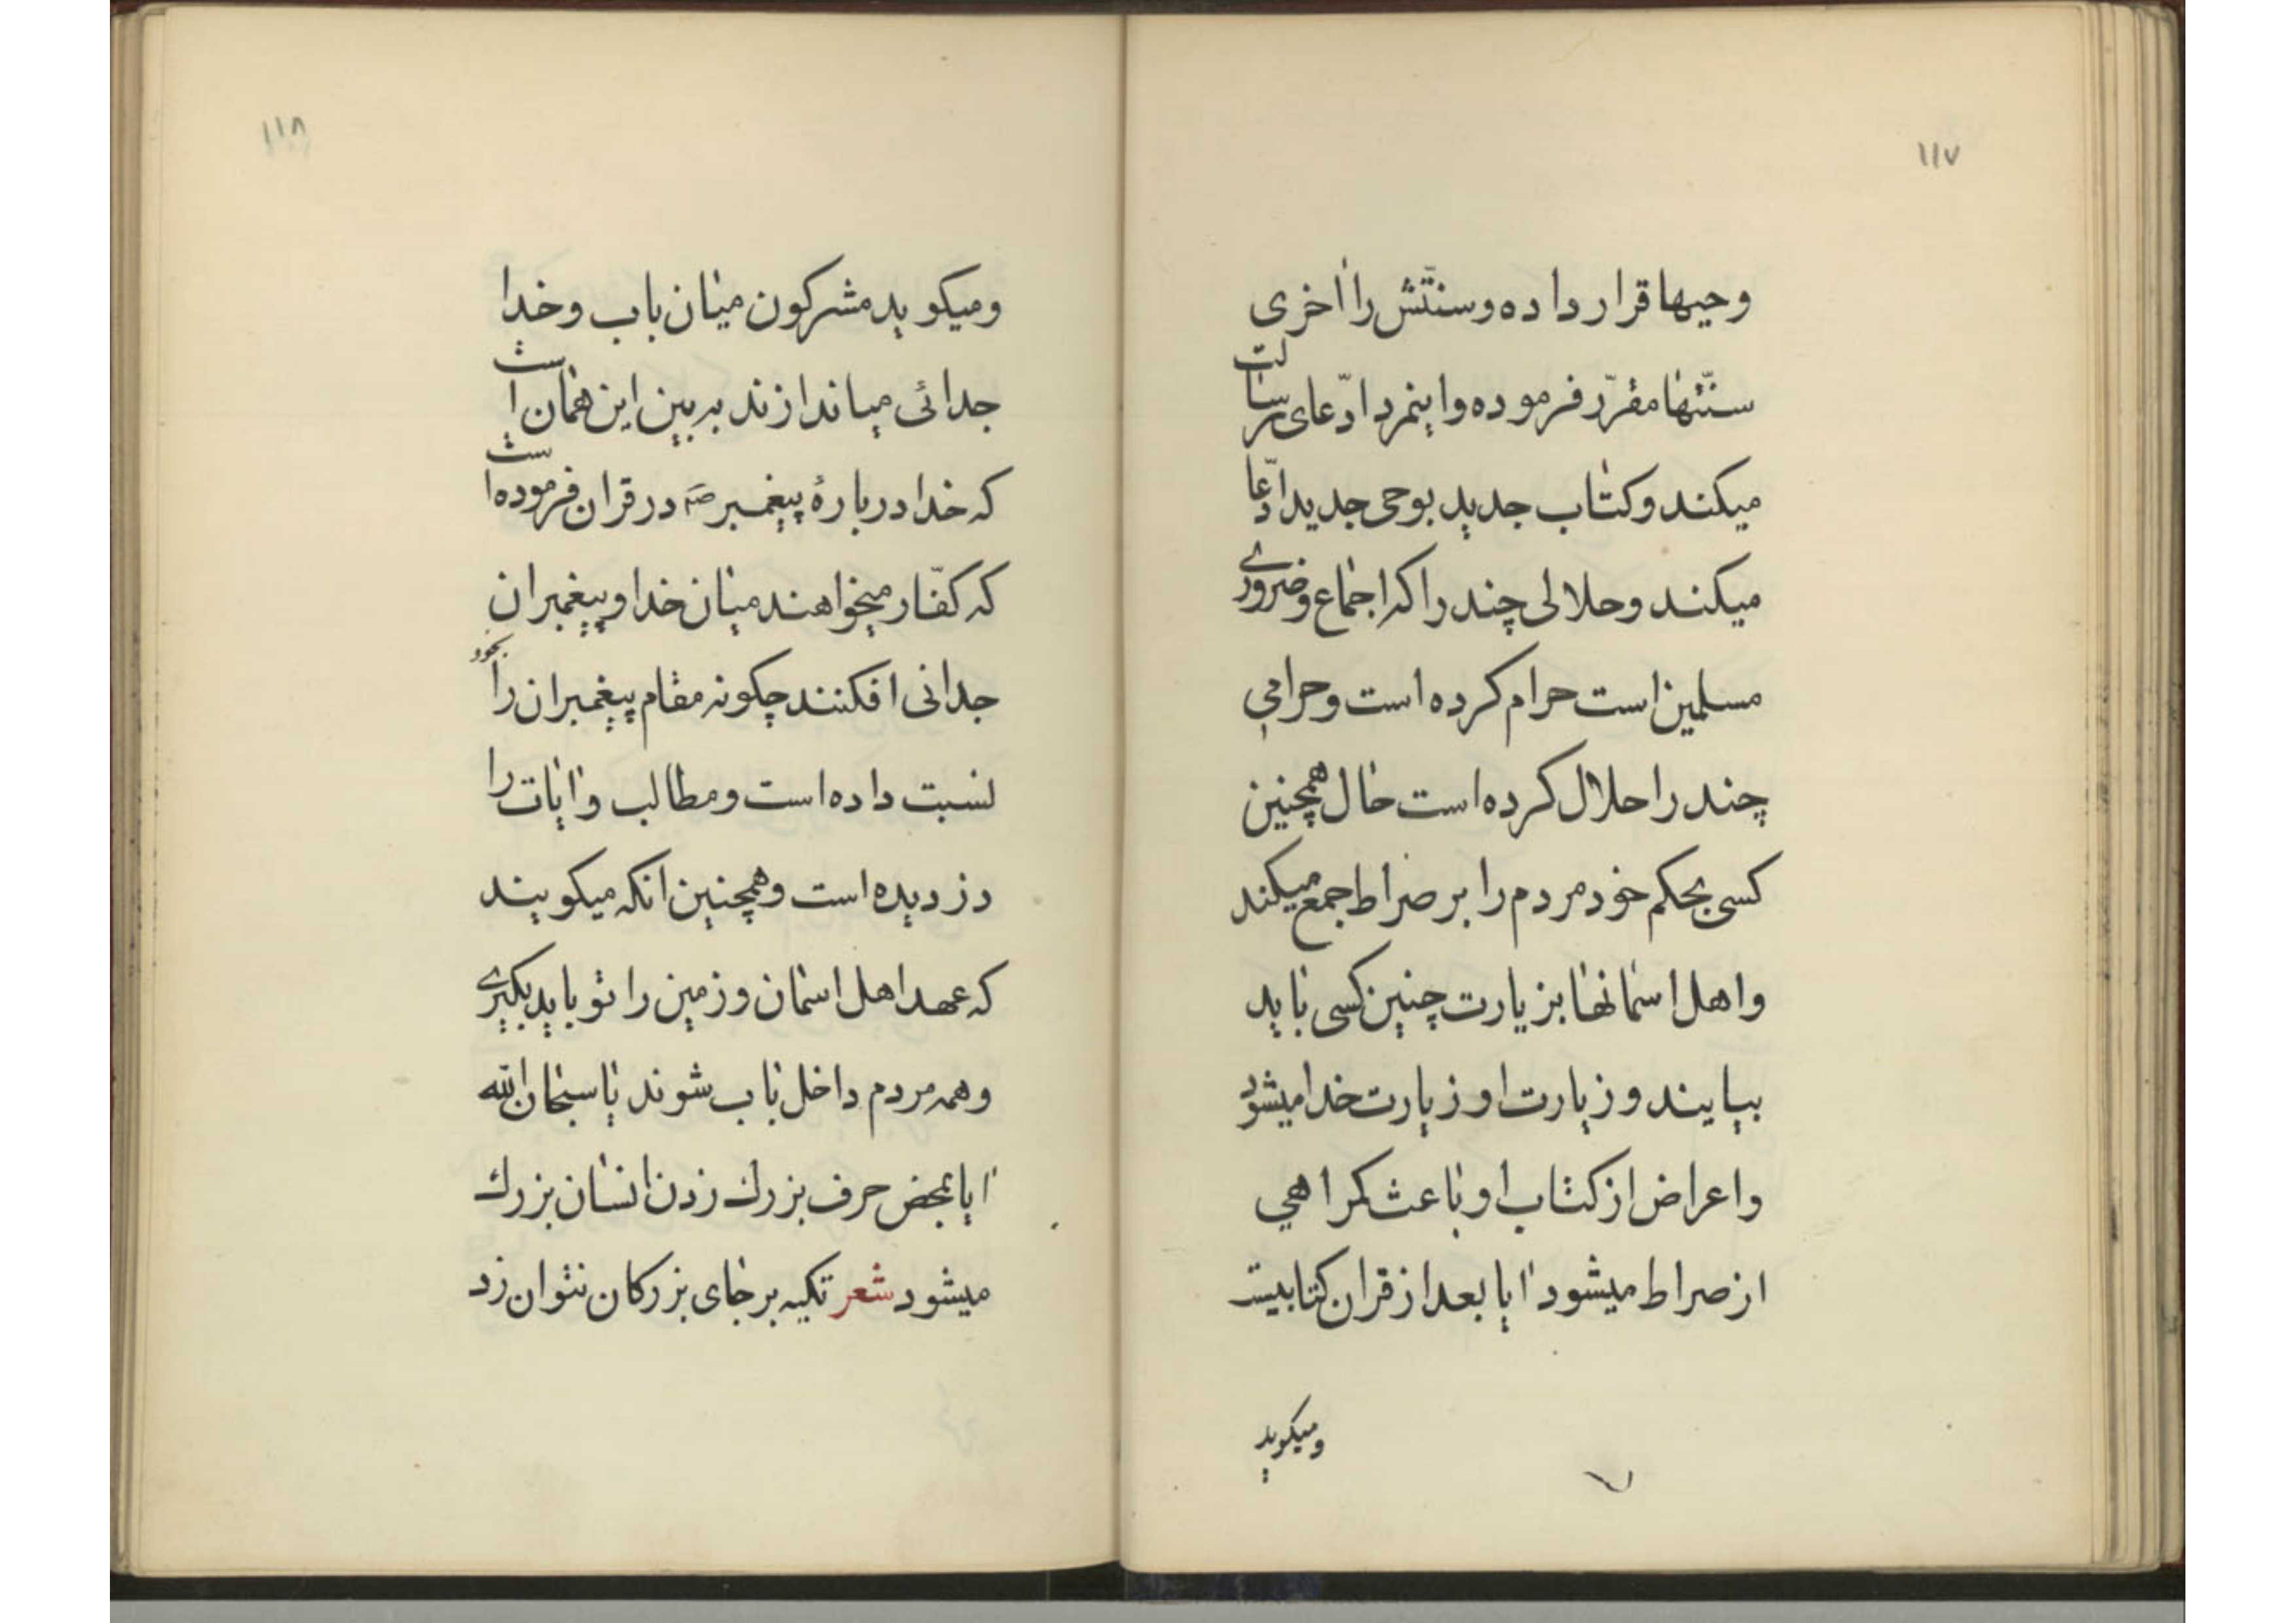 ۱۱۷
وحیها قرار داده و سنتّش را اخری
سنّتها مقرّر فرموده و اینمرد ادّعای رسالت
میکند و کتاب جدید بوحی جدید ادّعا
میکند و حلالی چند را که اجماع و ضروری
مسلمین است حرام کرده است و حرامی
چند را حلال کرده است حال همچنین
کسی بحکم خود مردم را بر صراط جمع میکند
و اهل اسمانها بزیارت چنین کسی باید
بیایند و زیارت او زیارت خدا میشود
و اعراض از کتاب او باعث کمراهی
از صراط میشود ایا بعد از قران کتابیست
ومیکوید
۱۱۸
ومیکوید مشرکون میان باب و خدا
جدائی میاندازند به بین این همان است
که خدا در بارهٔ پیغمبر صم در قران فرموده است
که کفّار میخواهند میان خدا و پیغمبران
جدائی افکنند چکونه مقام پیغمبران را بخود
نسبت داده است و مطالب و ایات را
دزدیده است و همچنین انکه میکویند
که عهد اهل اسمان و زمین را تو باید بکیری
و همه مردم داخل باب شوند یا سبحان الله
ایا بمحض حرف بزرك زدن انسان بزرك
میشود شعر تکیه بر جای بزرکان نتوان زد